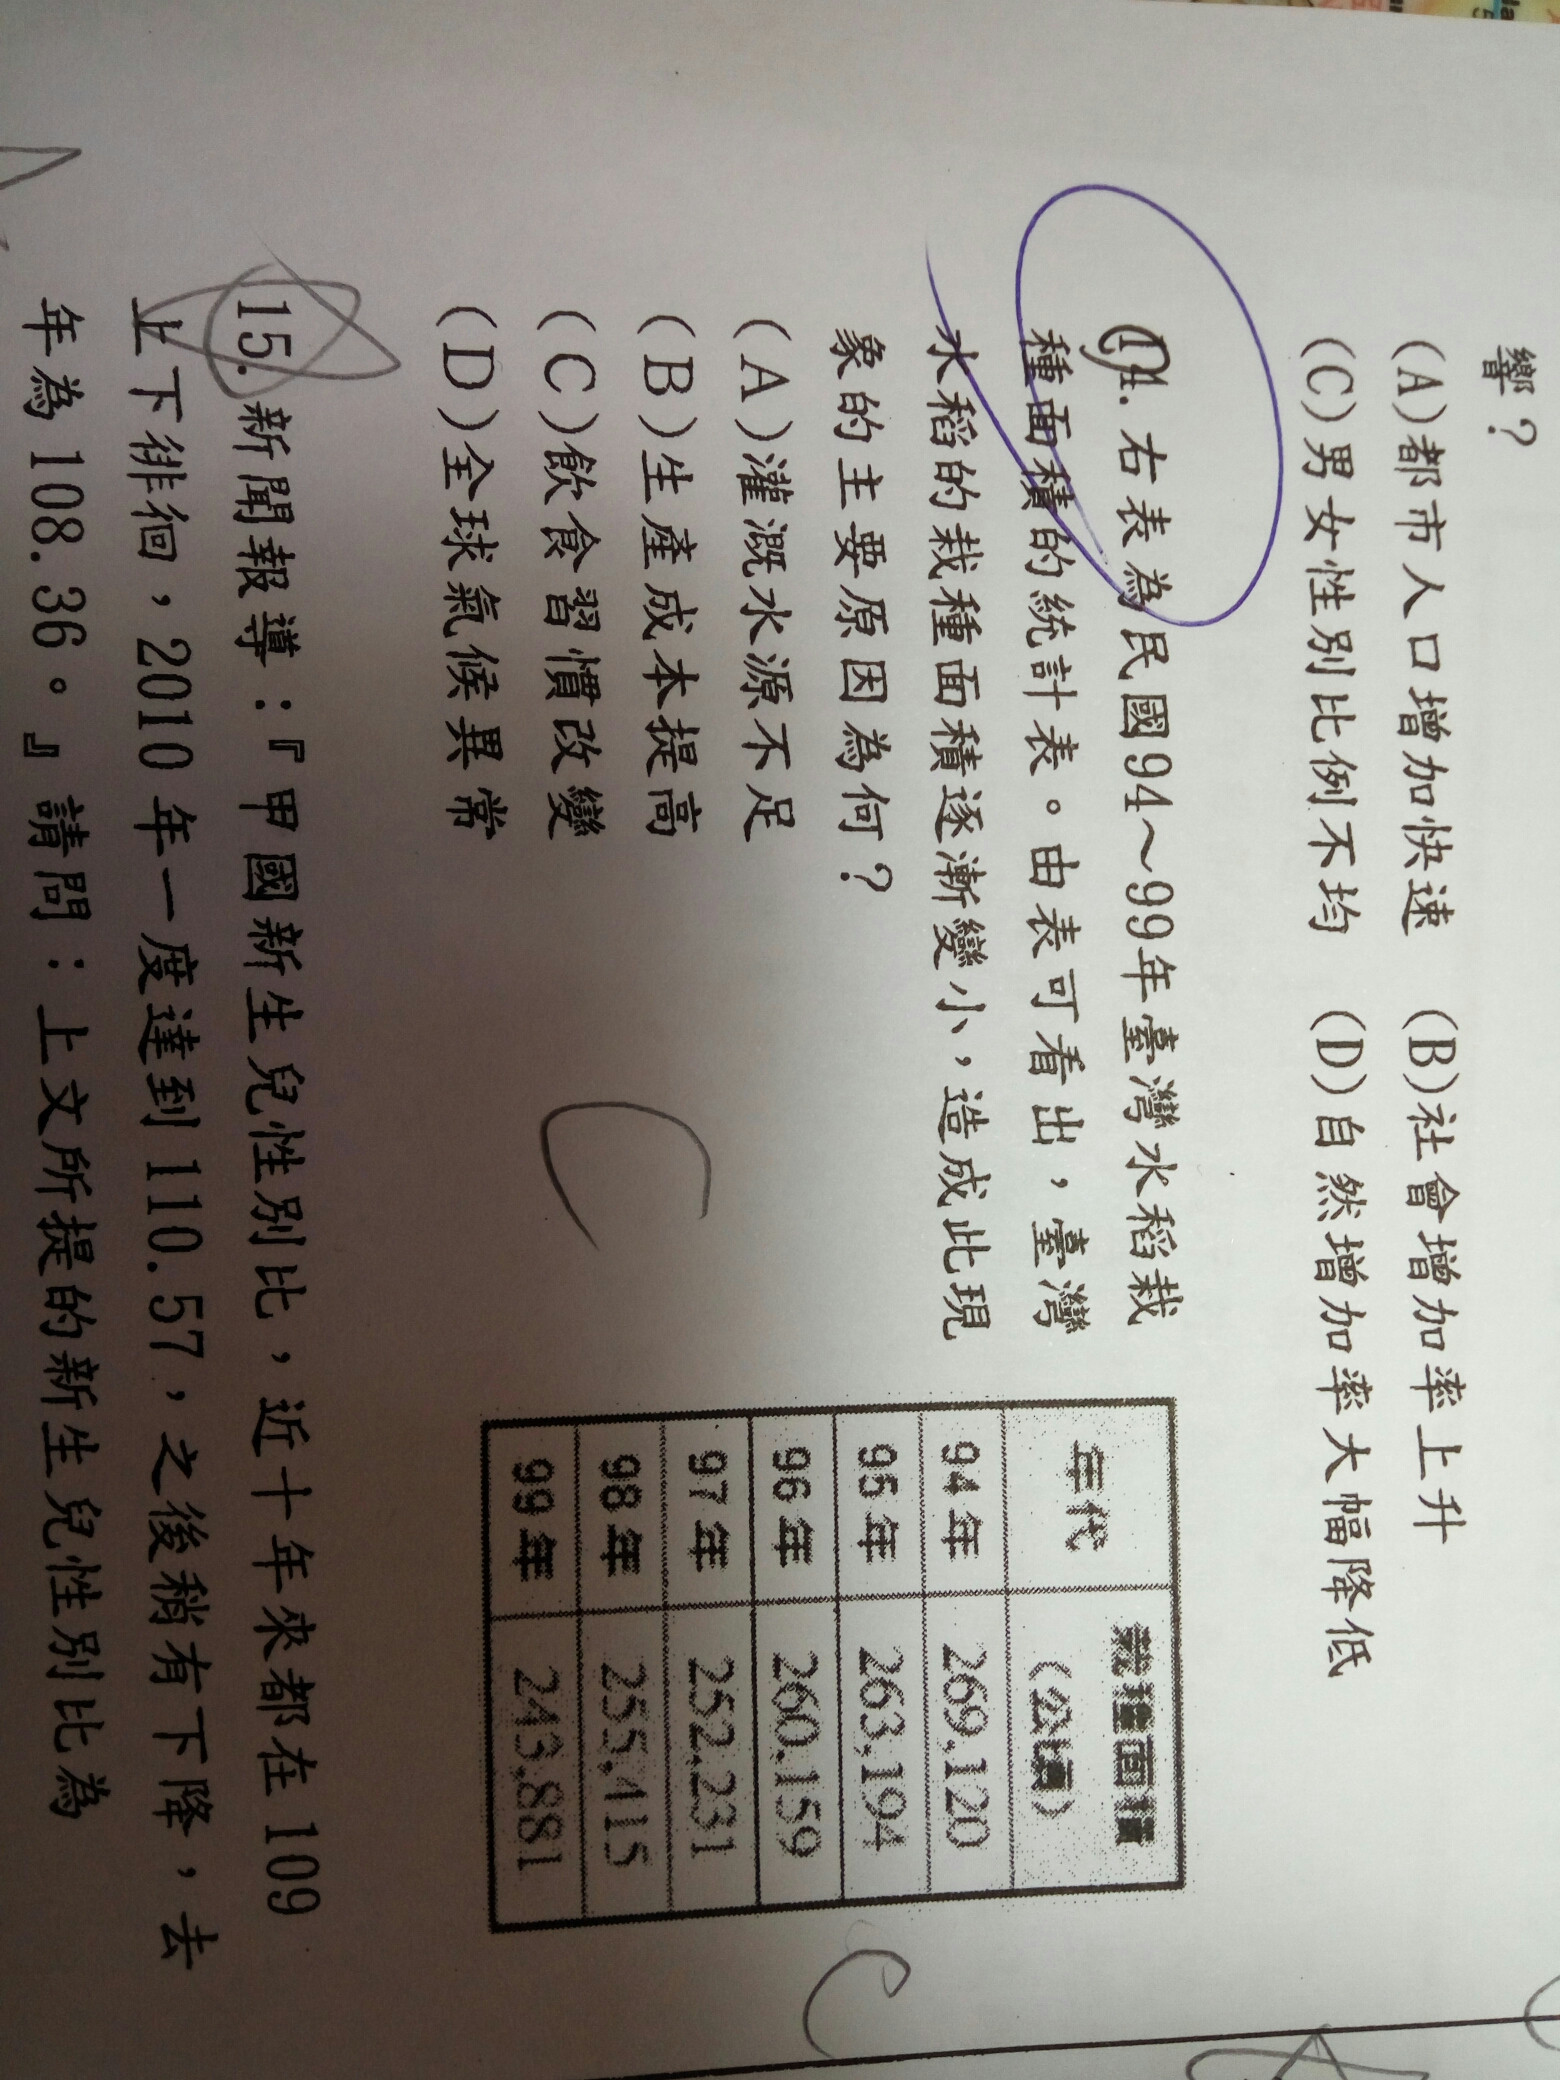 響？
(A)都市人口增加快速　(B)社會增加率上升
(C)男女性別比例不均　(D)自然增加率大幅降低
14. 右表為民國94～99年臺灣水稻栽
種面積的統計表。由表可看出，臺灣
水稻的栽種面積逐漸變小，造成此現
象的主要原因為何？
(A)灌溉水源不足
(B)生產成本提高
(C)飲食習慣改變
(D)全球氣候異常
C
年代　栽種面積（公頃）
94年　269,120
95年　263,194
96年　260,159
97年　252,231
98年　255,415
99年　243,881
15. 新聞報導：『甲國新生兒性別比，近十年來都在109
上下徘徊，2010年一度達到110.57，之後稍有下降，去
年為108.36。』請問：上文所提的新生兒性別比為